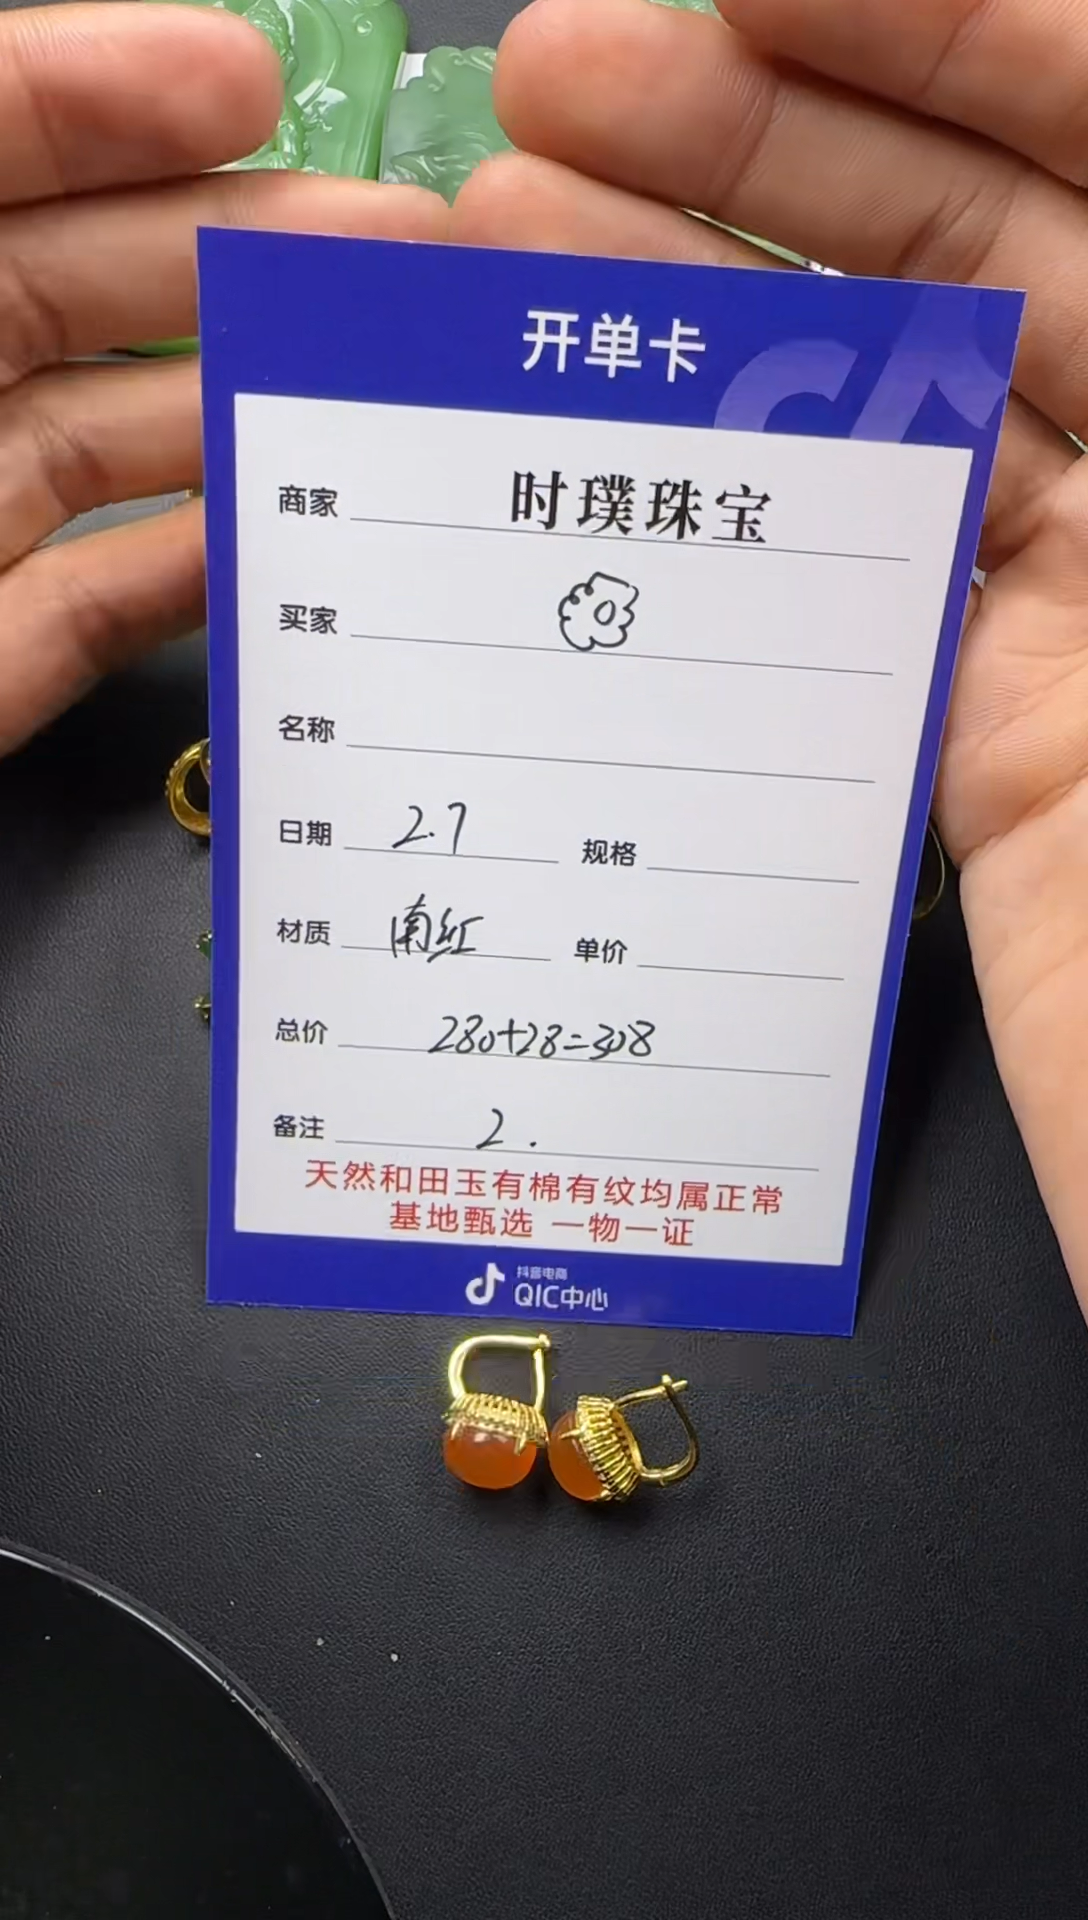 开单卡
商家 时璞珠宝
买家
名称
日期 2.7 规格
材质 南红 单价
总价 280+28=308
备注 2.
天然和田玉有棉有纹均属正常
基地甄选 一物一证
抖音电商
QIC中心